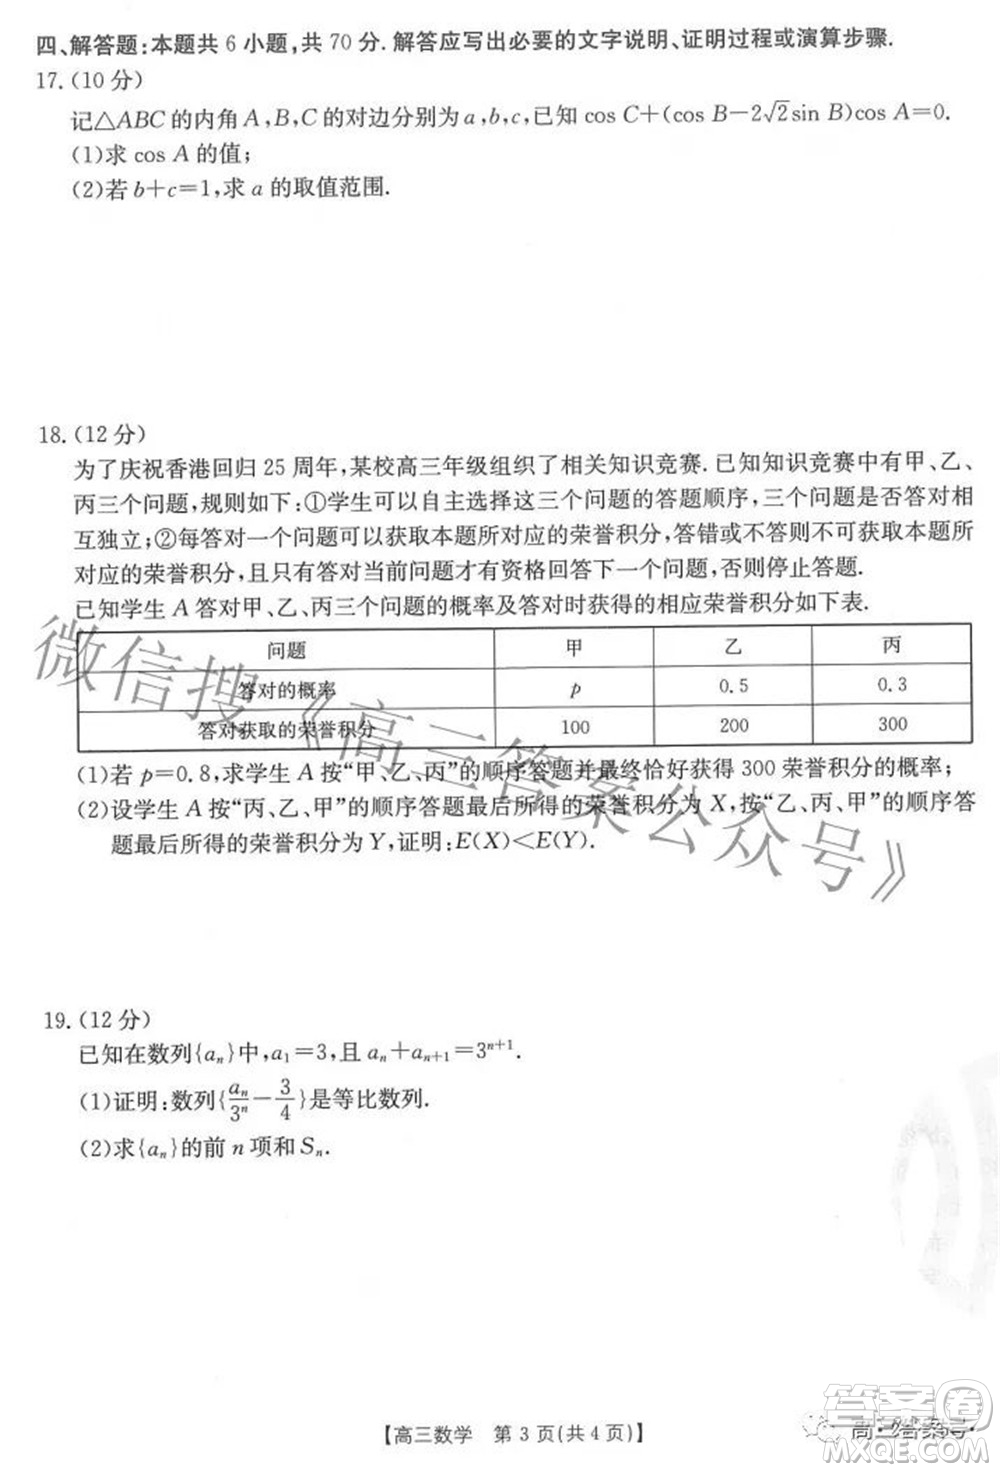 四、解答题:本题共 6 小题,共 70 分.解答应写出必要的文字说明、证明过程或演算步骤.
17.(10 分)
记△ABC 的内角 A,B,C 的对边分别为 a,b,c,已知 cos C+(cos B−2√2sin B)cos A=0.
(1)求 cos A 的值;
(2)若 b+c=1,求 a 的取值范围.
18.(12 分)
为了庆祝香港回归 25 周年,某校高三年级组织了相关知识竞赛.已知知识竞赛中有甲、乙、
丙三个问题,规则如下:①学生可以自主选择这三个问题的答题顺序,三个问题是否答对相
互独立;②每答对一个问题可以获取本题所对应的荣誉积分,答错或不答则不可获取本题所
对应的荣誉积分,且只有答对当前问题才有资格回答下一个问题,否则停止答题.
已知学生 A 答对甲、乙、丙三个问题的概率及答对时获得的相应荣誉积分如下表.
问题 甲 乙 丙
答对的概率 p 0.5 0.3
答对获取的荣誉积分 100 200 300
(1)若 p=0.8,求学生 A 按“甲、乙、丙”的顺序答题并最终恰好获得 300 荣誉积分的概率;
(2)设学生 A 按“丙、乙、甲”的顺序答题最后所得的荣誉积分为 X,按“乙、丙、甲”的顺序答
题最后所得的荣誉积分为 Y,证明:E(X)<E(Y).
微信搜《高三答案公众号》
19.(12 分)
已知在数列{aₙ}中,a₁=3,且 aₙ+aₙ₊₁=3ⁿ⁺¹.
(1)证明:数列{aₙ/3ⁿ−3/4}是等比数列.
(2)求{aₙ}的前 n 项和 Sₙ.
【高三数学 第 3 页(共 4 页)】
答案圈
MXQE.COM